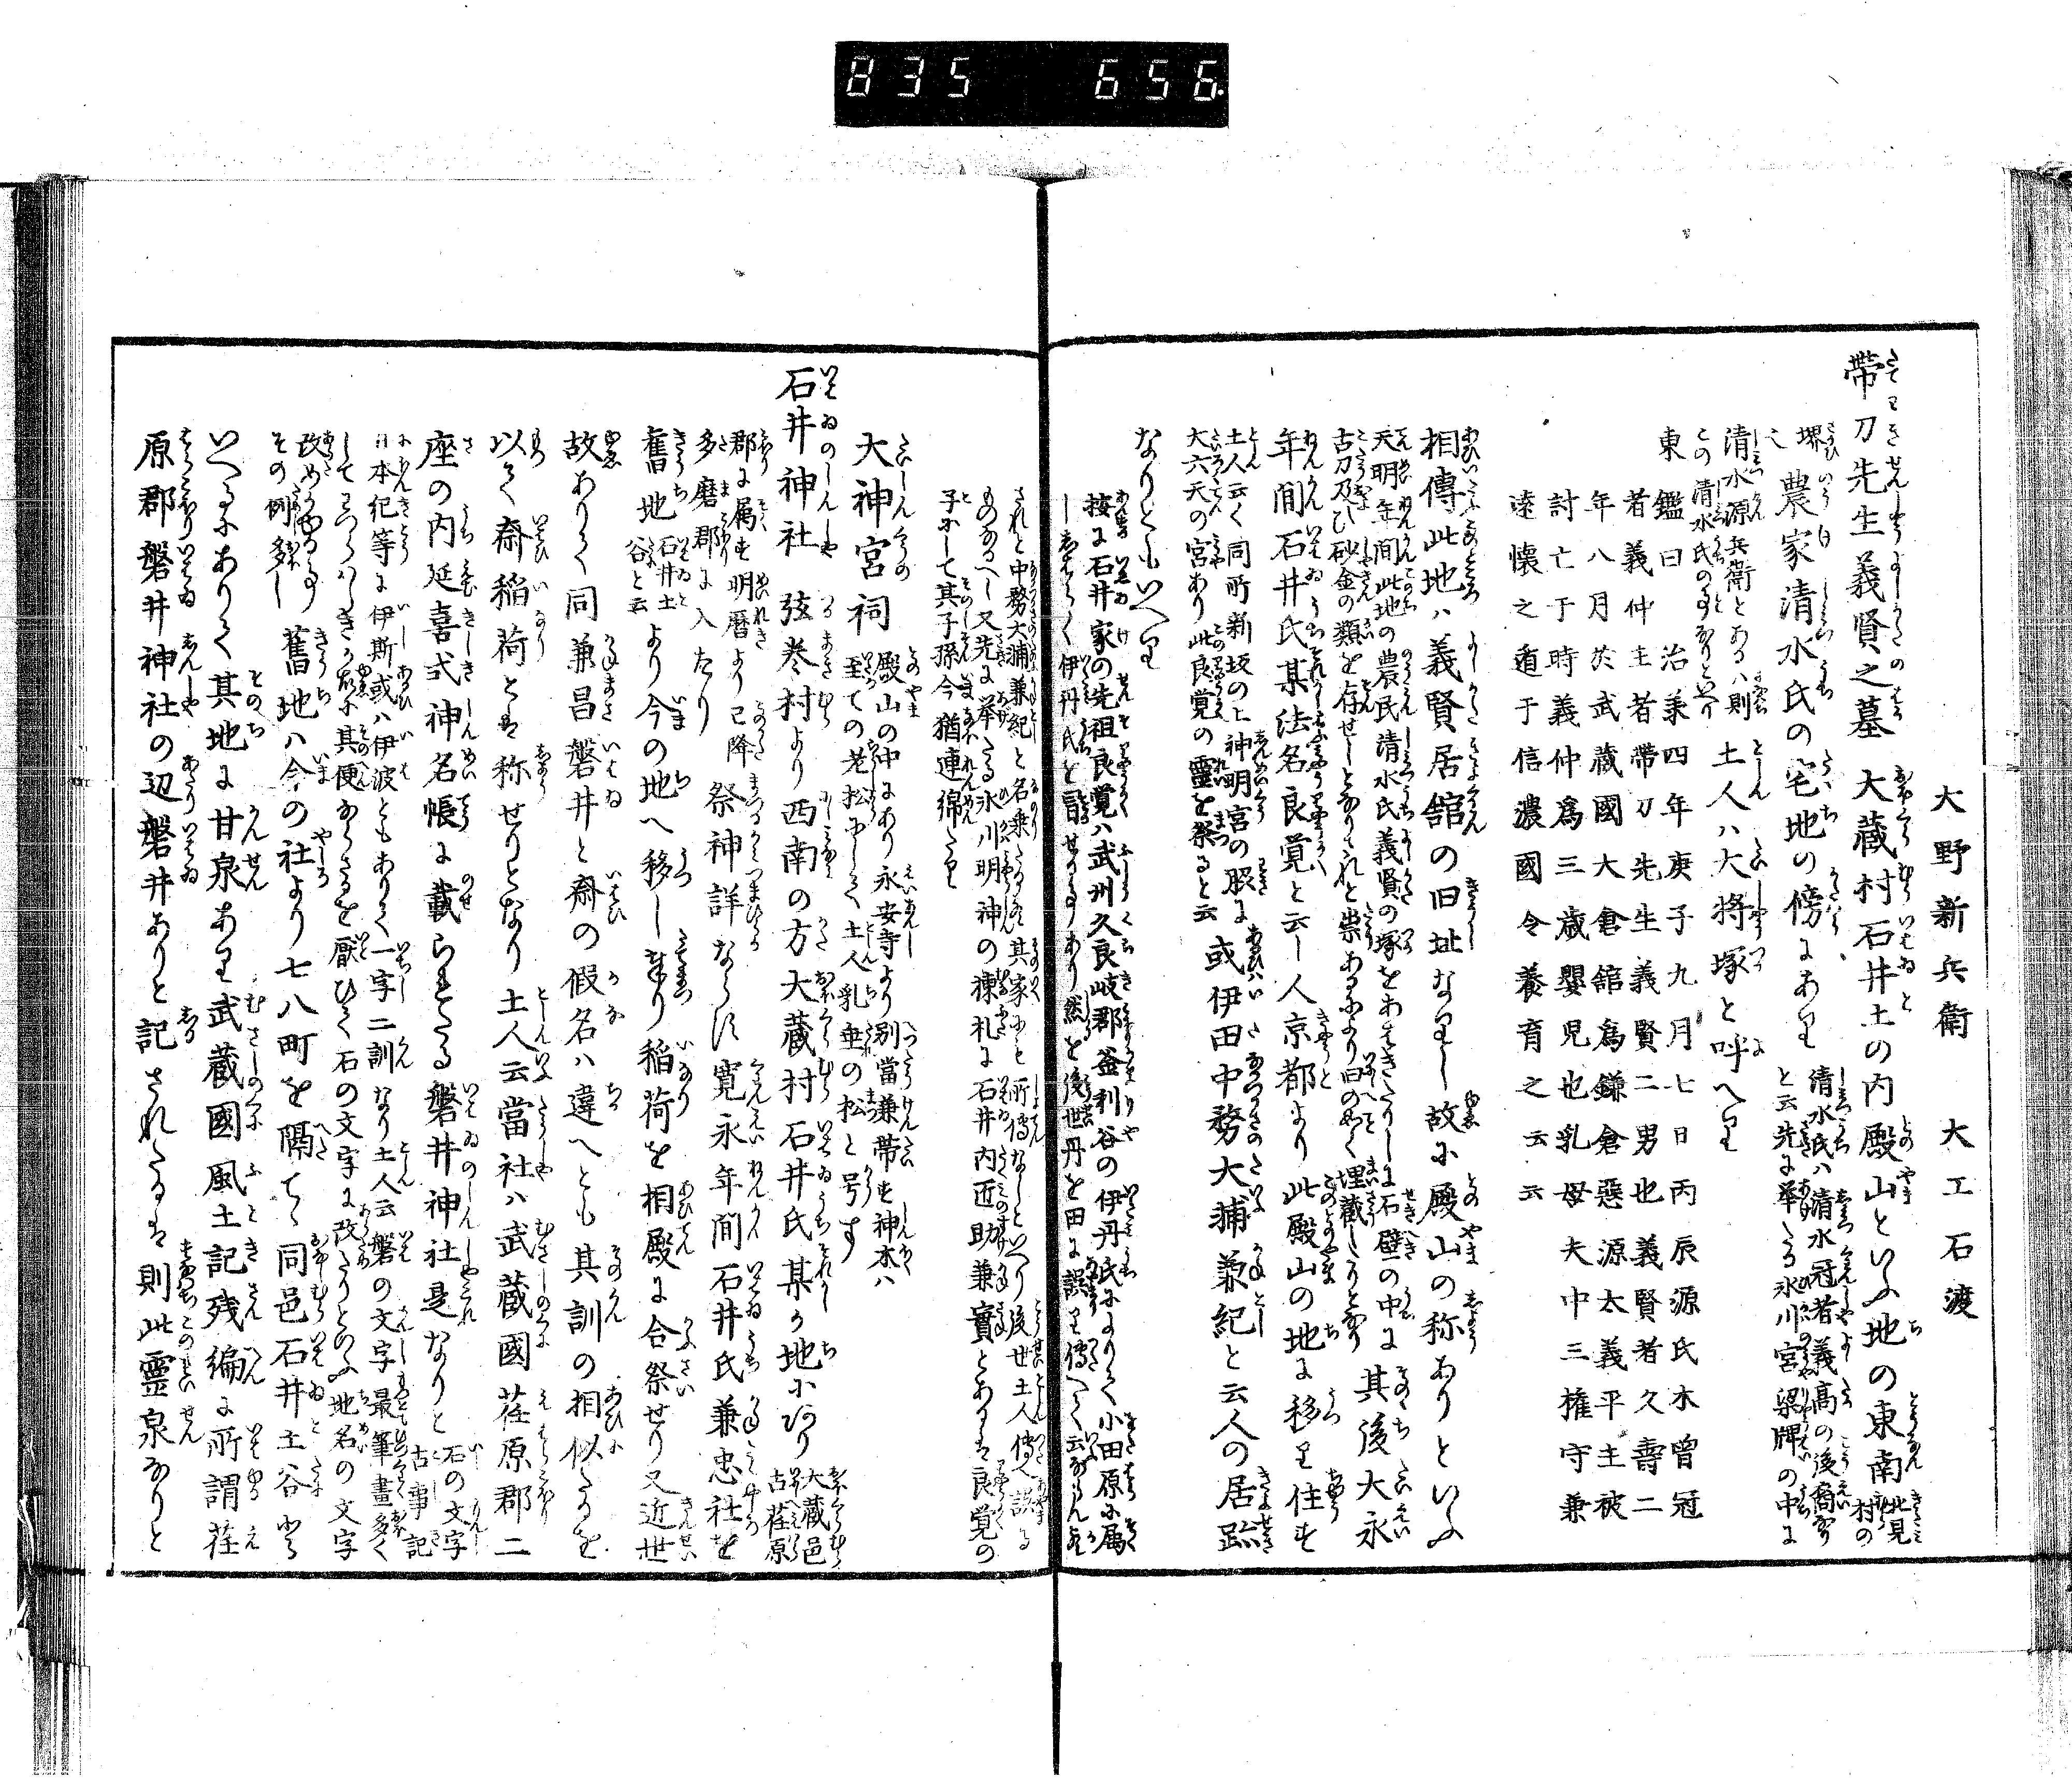 835 656
大野新兵衛　大工石渡
帯刀先生義賢之墓　大蔵村石井土の内殿山といふ地の東南北見村の
堺農家清水氏の宅地の傍にあり清水氏ハ清水冠者義高の後裔なりと云先に挙たる氷川宮梁牌の中に
清水源兵衛とあるハ則この清水氏の事なりといへり土人ハ大将塚と呼へり
東鑑曰　治承四年庚子九月七日丙辰源氏木曽冠
者義仲主者帯刀先生義賢二男也義賢者久壽二
年八月於武蔵國大倉舘為鎌倉惡源太義平主被
討亡于時義仲為三歳嬰児也乳母夫中三権守兼
遠懐之遁于信濃國令養育之云云
相傳此地ハ義賢居舘の旧址なりし故に殿山の称ありといふ
天明年間此地の農民清水氏義賢の塚をあはきたりしに石壁の中に
古刀及ひ砂金の類を存せしとなりされと祟あるにより旧のことく埋蔵したりとなり其後大永
年間石井氏某法名良覚と云し人京都より此殿山の地に移り住す
土人云く同所新坂の上神明宮の脇に
大六天の宮あり此良覚の靈を祭ると云或伊田中務大輔兼紀と云人の居跡
なりともいへり
按に石井家の先祖良覚ハ武州久良岐郡釜利谷の伊丹氏によりて小田原に属
し
されと中務大輔兼紀と名乗たる
ものなるへし又先に挙たる氷川明神の棟札に石井内匠助兼實とあるは良覚の
子にして其子孫今猶連綿たり
大神宮祠　殿山の中にあり永安寺より別當兼帯す神木ハ
至ての老松にして土人乳垂の松と号す
石井神社　弦巻村より西南の方大蔵村石井氏某の地にあり大蔵邑古荏原
郡に属す明暦より已降
多磨郡に入たり祭神詳ならす寛永年間石井氏兼忠社を
舊地石井土谷と云より今の地へ移し奉り稲荷を相殿に合祭せり又近世
故ありて同兼昌磐井と齋の假名ハ違へとも其訓の相似たるを
以て齋稲荷とは称せりとなり土人云當社ハ武蔵國荏原郡二
座の内延喜式神名帳に載らるゝ磐井神社是なりと石の文字古事記
日本紀等に伊斯或ハ伊波ともありて一字二訓なり土人云磐の文字最筆畫多く
して
改めたる事その例多し舊地ハ今の社より七八町を隔てゝ同邑石井土谷と
いへるにありて其地に甘泉あり武蔵國風土記残編に所謂荏
原郡磐井神社の辺磐井ありと記されたるは則此靈泉なりと